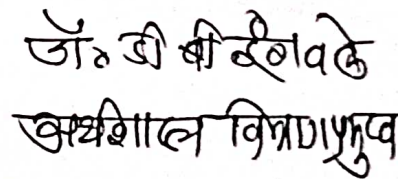 डॉ. डी बी इंगवले
अर्थशास्त्र विभागप्रमुख